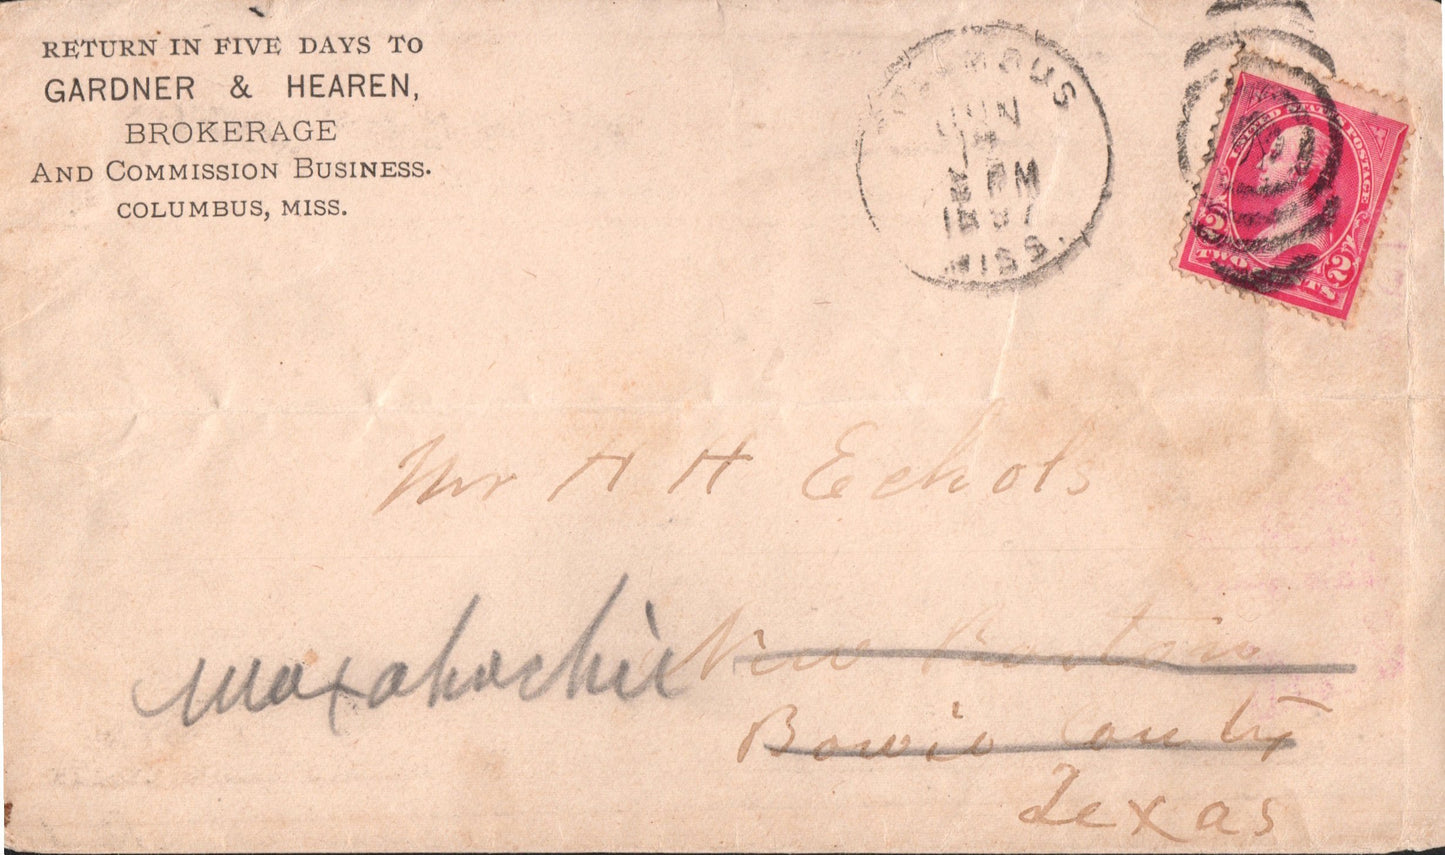 RETURN IN FIVE DAYS TO
GARDNER & HEAREN,
BROKERAGE
AND COMMISSION BUSINESS.
COLUMBUS, MISS.
COLUMBUS
JUN
PM
1897
MISS.
UNITED STATES POSTAGE
2 2
TWO CENTS
Mr H H Echols
New Boston
Waxahachie
Bowie County
Texas